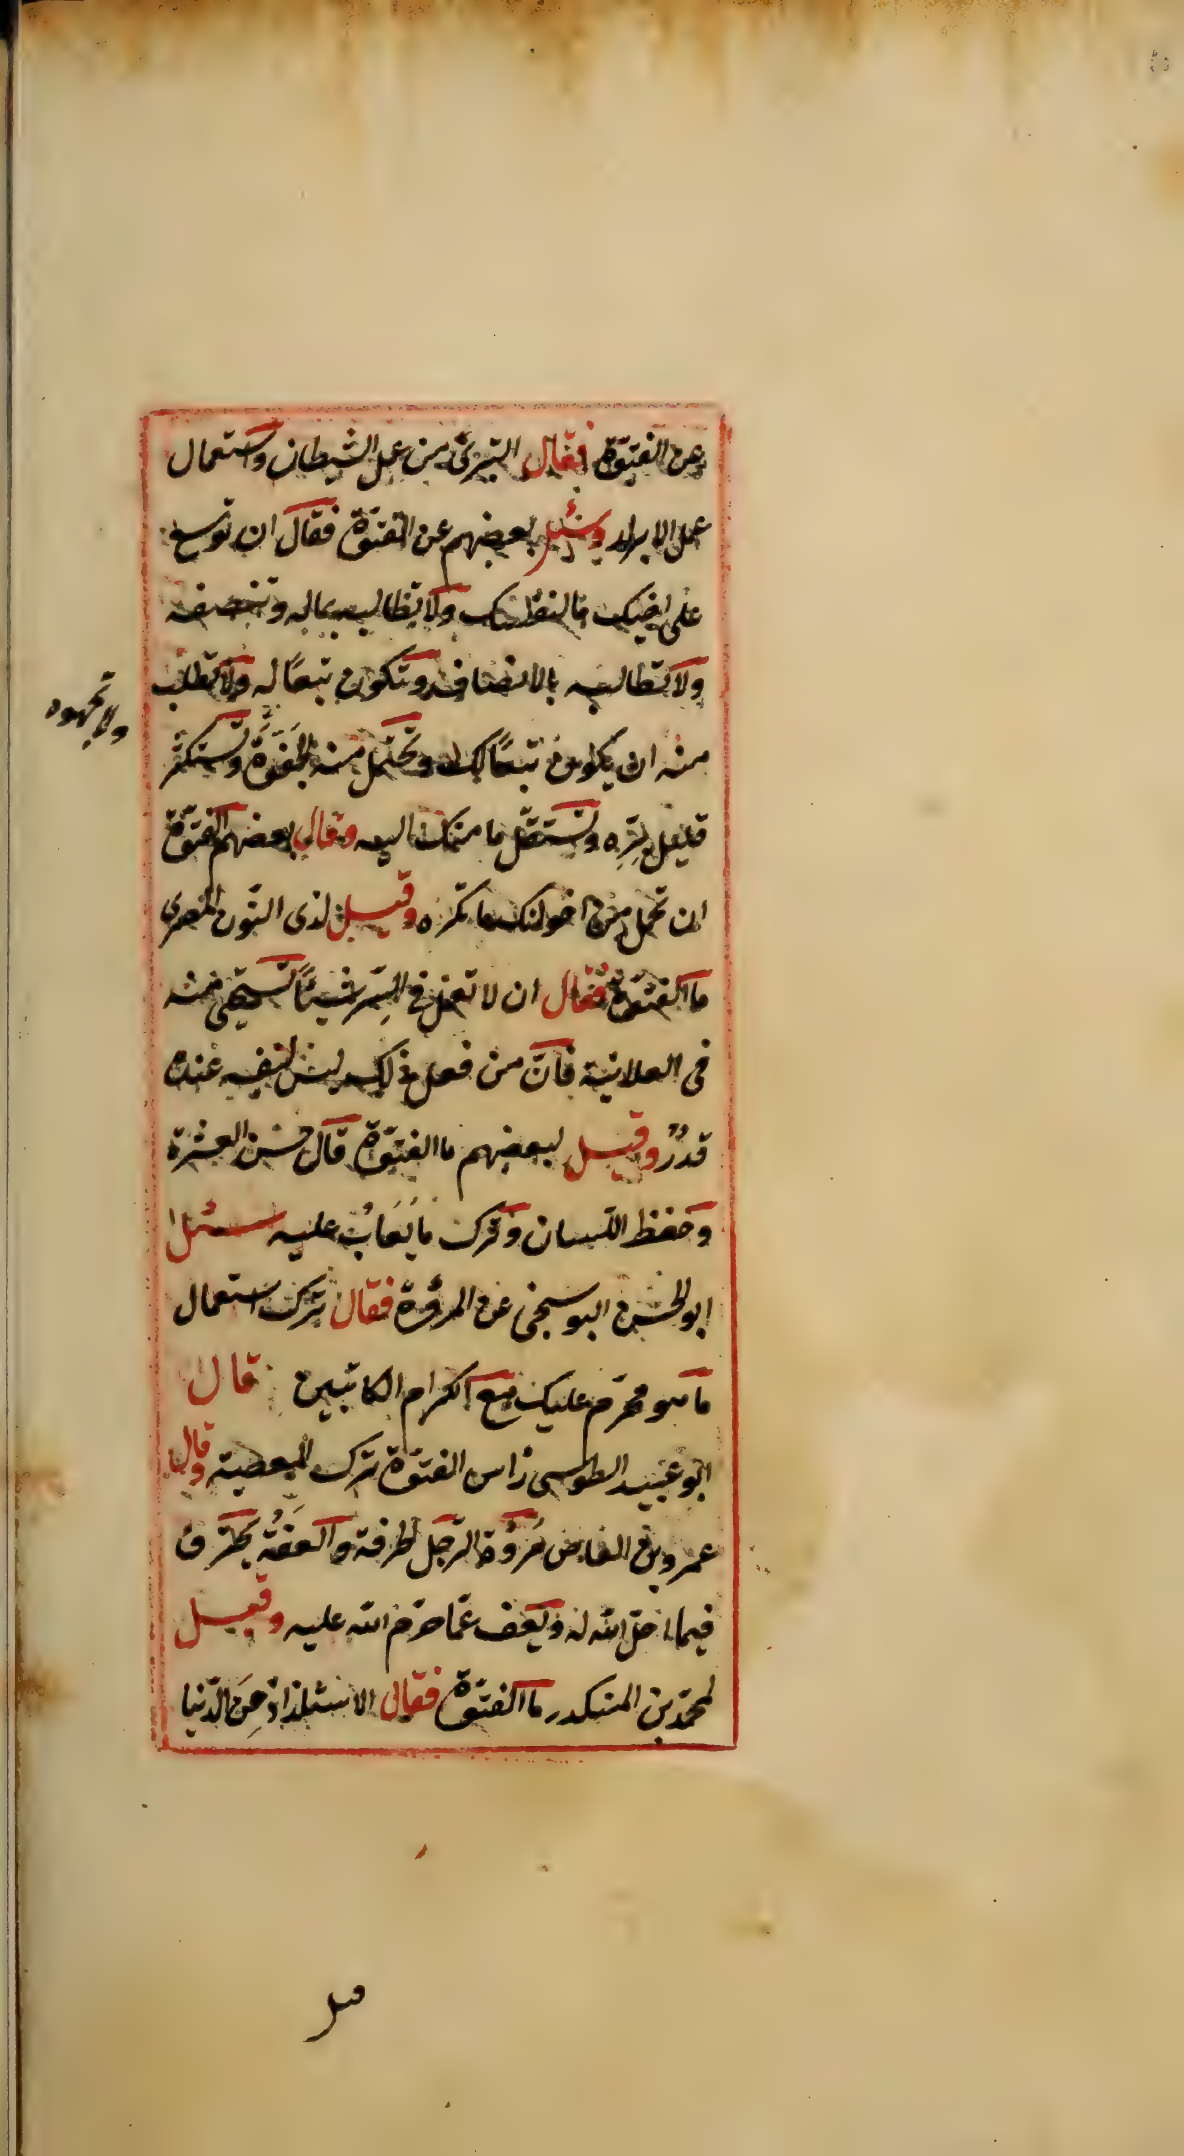 عن الفتوّة فقال التبرئ من عمل الشيطان واستعمال
عمل الابرار وسئل بعضهم عن الفتوّة فقال ان توسع
على اخيك ولا تطالبه بماله وتنصفه
ولا تطالبه بالانصاف وتكون تبعًا له ولا تطلب
منه ان يكون تبعًا لك وتحتمل منه الجَفوَةَ وتستكثر
قليل برّه وتستقلّ ما منك اليه وقال بعضهم الفتوّة
ان تحمل من اخوانك ما تكره وقيل لذى النّون المصرى
ما الفتوة فقال ان لا تعمل فى السّر شيئًا تستحيى منه
فى العلانية فانّ من فعل ذلك ليس لنفسه عنده
قدرٌ وقيل لبعضهم ما الفتوّة قال حسن العشرة
وحفظ اللسان وترك ما يُعَابُ عليه سئل
ابو الحسن البوسنجى عن المروّة فقال ترك استعمال
ما هو محرّم عليك مع الكرام الكاتبين قال
ابو عبيد الطوسى راس الفتوّة ترك المعصية وقال
عمرو بن العاص مُروُّة الرّجل الحرفة والعَفُّة يحترف
فيما احلّ الله له ويعف عمّا حرّم الله عليه وقيل
لمحمّد بن المنكدر ما الفتوّة فقال الاستلذاذ من الدّنيا
ولا تجهوه
قيل